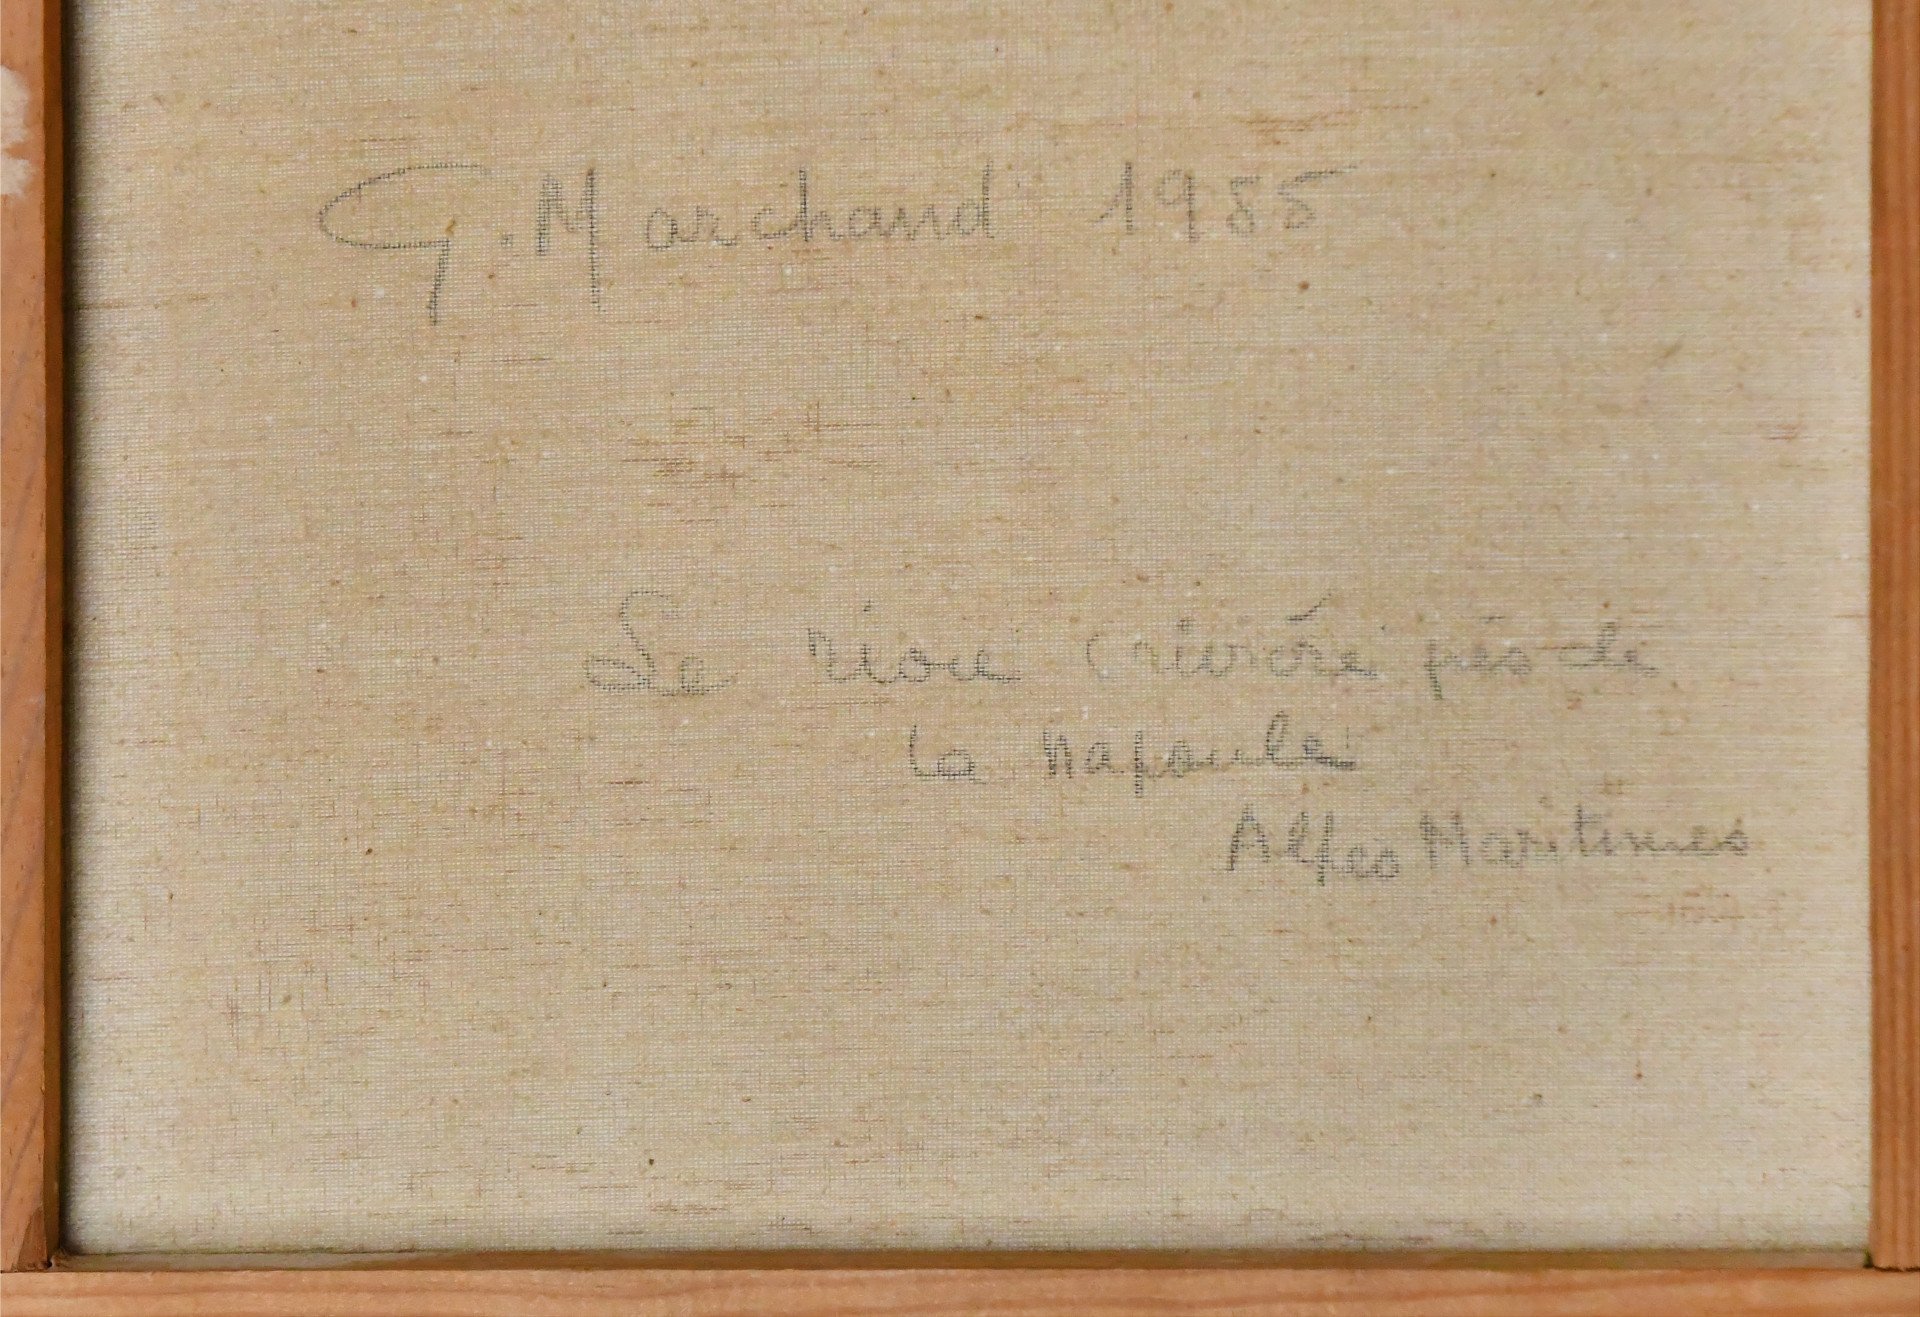 G. Marchand 1985
Le riou (rivière près de
la napoule
Alpes Maritimes